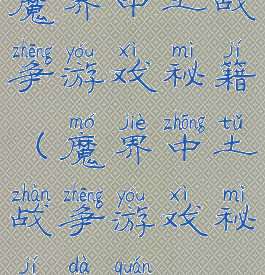 魔界中土战
zhēng yóu xì mì jí
争游戏秘籍
mó jiè zhōng tǔ
（魔界中土
zhàn zhēng yóu xì mì
战争游戏秘
jí dà quán